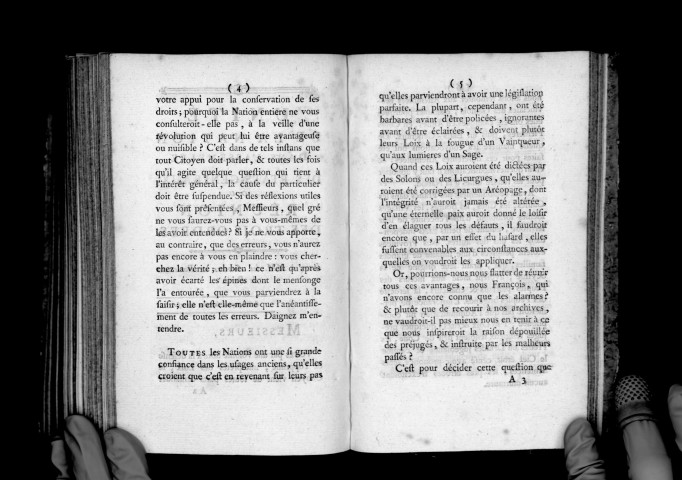 ( 4 )
votre appui pour la conservation de ses
droits ; pourquoi la Nation entiere ne vous
consulteroit-elle pas, à la veille d'une
révolution qui peut lui être avantageuse
ou nuisible ? C'est dans de tels instans que
tout Citoyen doit parler, & toutes les fois
qu'il agite quelque question qui tient à
l'intérêt général, la cause du particulier
doit être suspendue. Si des réflexions utiles
vous sont présentées, Messieurs, quel gré
ne vous saurez-vous pas à vous-mêmes de
les avoir entendues ? Si je ne vous apporte,
au contraire, que des erreurs, vous n'aurez
pas encore à vous en plaindre : vous cher-
chez la vérité ; eh bien ! ce n'est qu'après
avoir écarté les épines dont le mensonge
l'a entourée, que vous parviendrez à la
saisir ; elle n'est elle-même que l'anéantisse-
ment de toutes les erreurs. Daignez m'en-
tendre.
TOUTES les Nations ont une si grande
confiance dans les usages anciens, qu'elles
croient que c'est en revenant sur leurs pas
( 5 )
qu'elles parviendront à avoir une législation
parfaite. La plupart, cependant, ont été
barbares avant d'être policées, ignorantes
avant d'être éclairées, & doivent plutôt
leurs Loix à la fougue d'un Vainqueur,
qu'aux lumieres d'un Sage.
Quand ces Loix auroient été dictées par
des Solons ou des Licurgues, qu'elles au-
roient été corrigées par un Aréopage, dont
l'intégrité n'auroit jamais été altérée,
qu'une éternelle paix auroit donné le loisir
d'en élaguer tous les défauts, il faudroit
encore que, par un effet du hasard, elles
fussent convenables aux circonstances aux-
quelles on voudroit les appliquer.
Or, pourrions-nous nous flatter de réunir
tous ces avantages, nous François, qui
n'avons encore connu que les alarmes ?
& plutôt que de recourir à nos archives,
ne vaudroit-il pas mieux nous en tenir à ce
que nous inspireroit la raison dépouillée
des préjugés, & instruite par les malheurs
passés ?
C'est pour décider cette question que
A 3